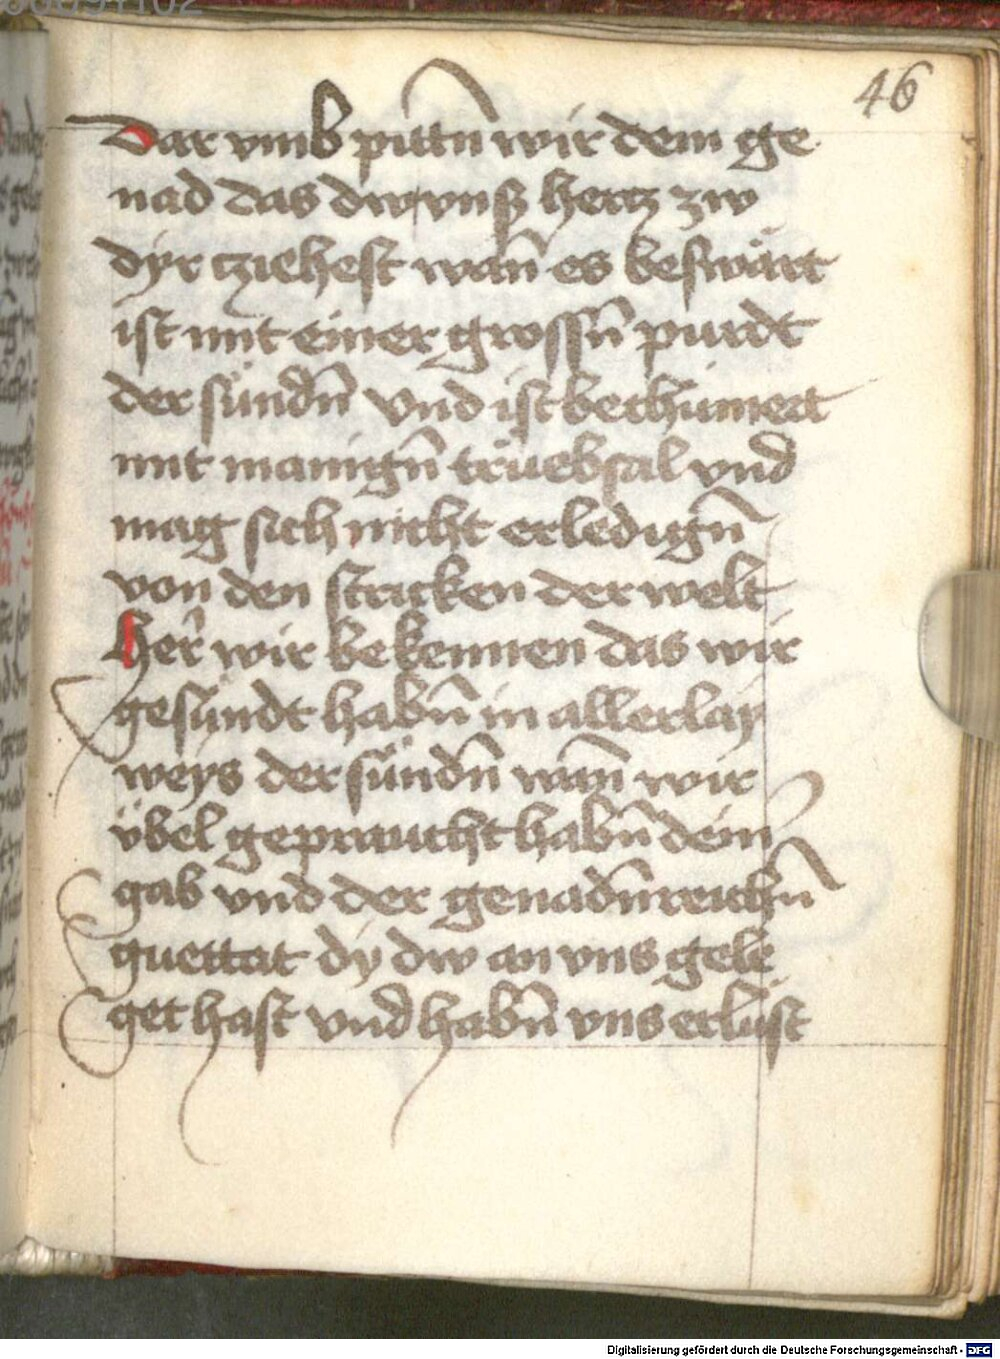 46
Dar vmb pittn̄ wir dein ge
nad das dw vnß hertz zw
dyr tziehest wan̄ es beswärt
ist mit einer grossn̄ purdt
der sündn̄ vnd ist bechümert
mit manign̄ trüebsal vnd
mag sich nicht erledign̄
von den stricken der welt
Her̄ wir bekennen das wir
gesündt habn̄ in allerlay
weys der sündn̄ wan̄ wir
übel geprawcht habn̄ dein̄
gab vnd der genadn̄reichn̄
guettat dy dw an vns gele
get hast vnd habn̄ vns erlüst
Digitalisierung gefördert durch die Deutsche Forschungsgemeinschaft - DFG